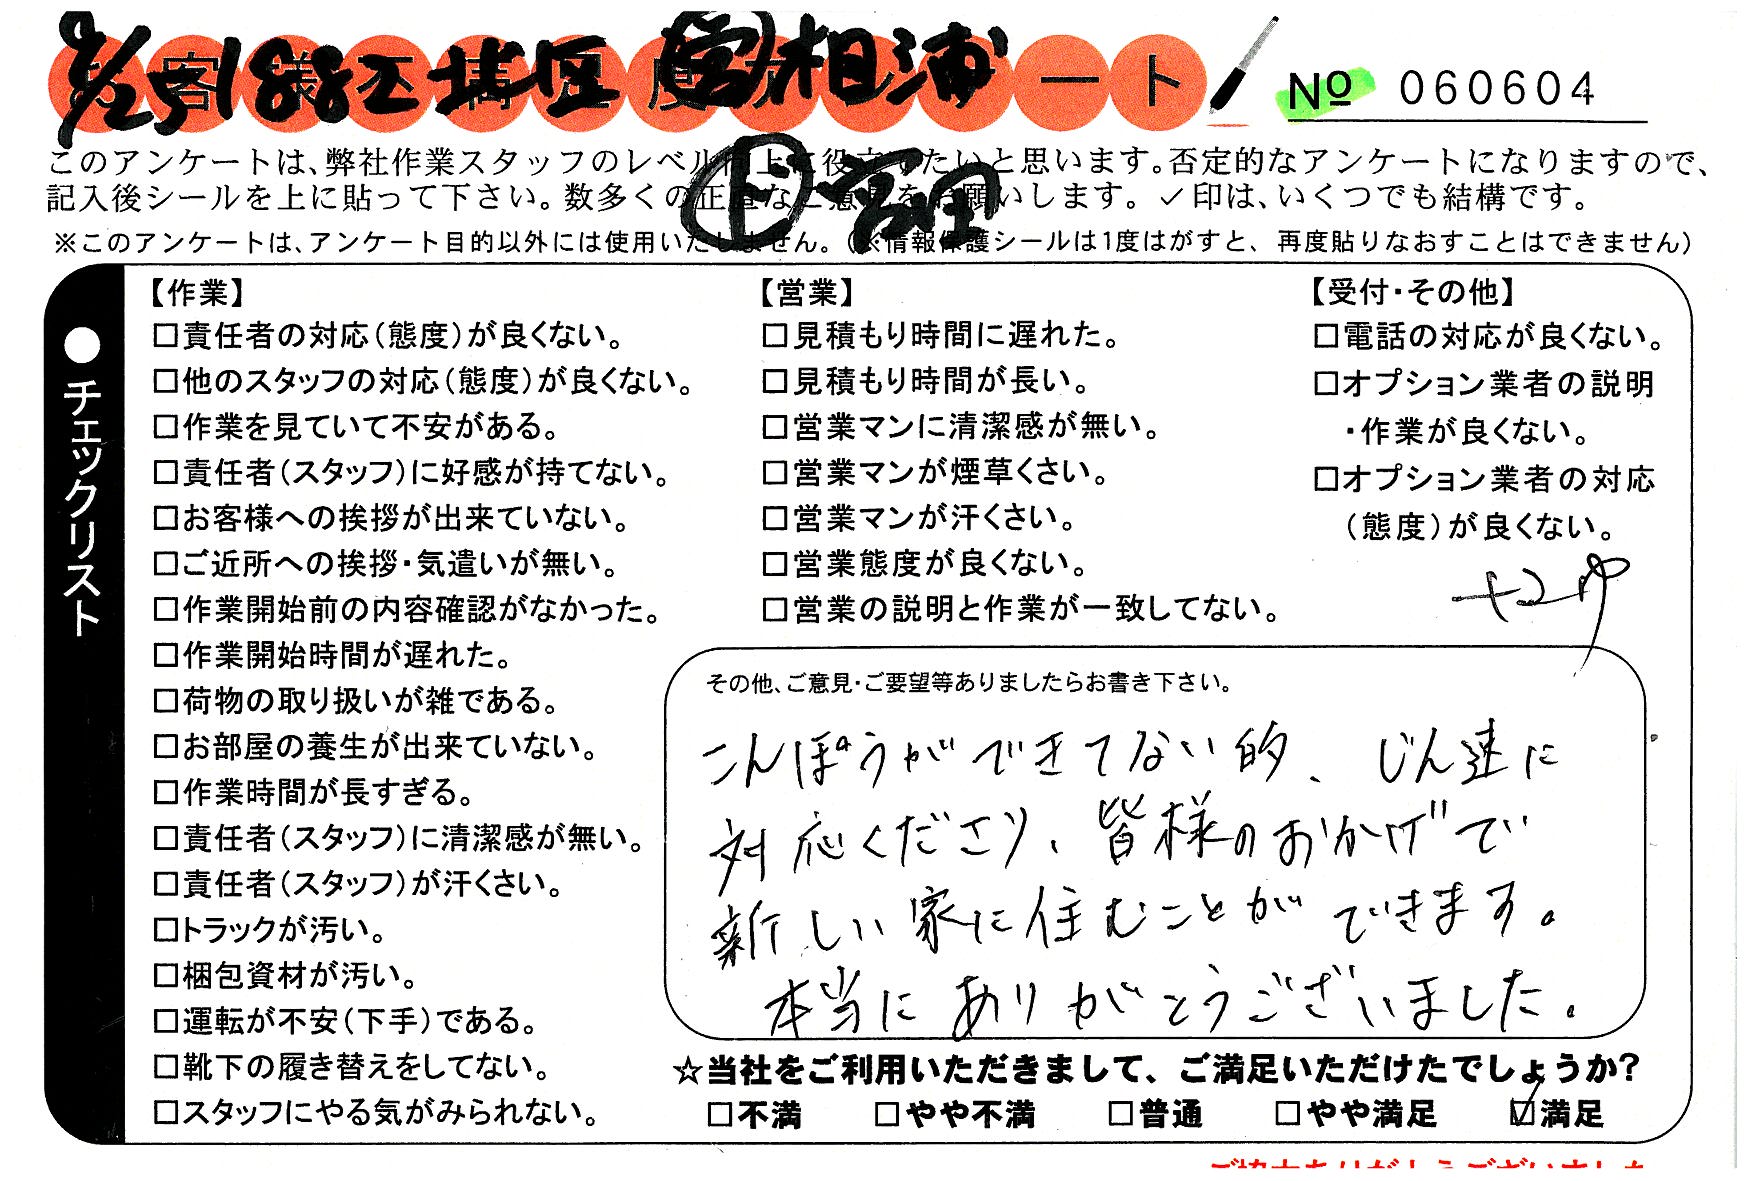 9/25 1882 堺区 営 相浦
ート
No 060604
ト 宮里
このアンケートは、弊社作業スタッフのレベル向上に役立てたいと思います。否定的なアンケートになりますので、
記入後シールを上に貼って下さい。数多くの正直なご意見をお願いします。✓印は、いくつでも結構です。
※このアンケートは、アンケート目的以外には使用いたしません。(※情報保護シールは1度はがすと、再度貼りなおすことはできません)
●チェックリスト
【作業】
□責任者の対応(態度)が良くない。
□他のスタッフの対応(態度)が良くない。
□作業を見ていて不安がある。
□責任者(スタッフ)に好感が持てない。
□お客様への挨拶が出来ていない。
□ご近所への挨拶・気遣いが無い。
□作業開始前の内容確認がなかった。
□作業開始時間が遅れた。
□荷物の取り扱いが雑である。
□お部屋の養生が出来ていない。
□作業時間が長すぎる。
□責任者(スタッフ)に清潔感が無い。
□責任者(スタッフ)が汗くさい。
□トラックが汚い。
□梱包資材が汚い。
□運転が不安(下手)である。
□靴下の履き替えをしてない。
□スタッフにやる気がみられない。
【営業】
□見積もり時間に遅れた。
□見積もり時間が長い。
□営業マンに清潔感が無い。
□営業マンが煙草くさい。
□営業マンが汗くさい。
□営業態度が良くない。
□営業の説明と作業が一致してない。
【受付・その他】
□電話の対応が良くない。
□オプション業者の説明
・作業が良くない。
□オプション業者の対応
(態度)が良くない。
その他、ご意見・ご要望等ありましたらお書き下さい。
こんぽうができてない的、じん速に
対応くださり、皆様のおかげで
新しい家に住むことができます。
本当にありがとうございました。
☆当社をご利用いただきまして、ご満足いただけたでしょうか?
□不満 □やや不満 □普通 □やや満足 ☑満足
ご協力ありがとうございました